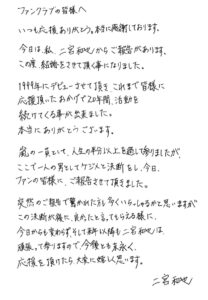 ファンクラブの皆様へ
いつも応援ありがとう。本当に感謝しております。
今日は私、二宮和也からご報告があります。
この度、結婚をさせて頂く事になりました。
1999年にデビューさせて頂き これまで皆様に
応援頂いたおかげで20年間、活動を
続けてくる事が出来ました。
本当にありがとうございます。
嵐の一員として、人生の半分以上を過して参りましたが、
ここで一人の男としてケジメと決断をし、今日、
ファンの皆様に、ご報告させて頂きました。
突然のご報告で驚かれた方も多くいらっしゃるかと思いますが
この決断が後に、良かったと言ってもらえる様に、
今日からも変わらず、そして来年以降も二宮和也は、
頑張って参りますので、今後とも末永く、
応援を頂けたら大変に嬉しく思います。
二宮和也